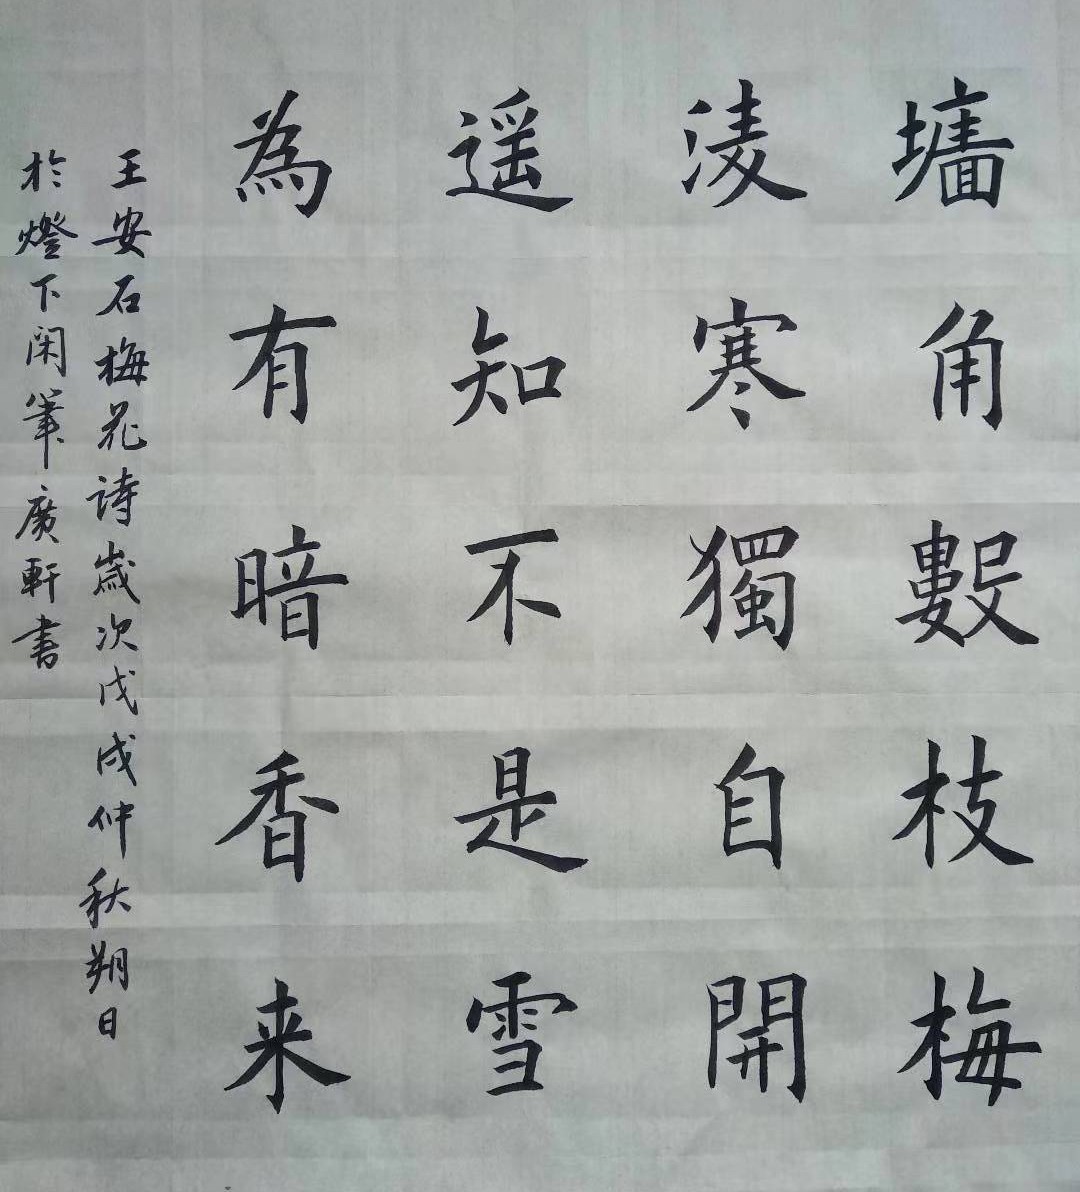 墻角數枝梅
淩寒獨自開
遥知不是雪
為有暗香来
王安石梅花诗歲次戊戌仲秋朔日
於燈下閑筆廣軒書